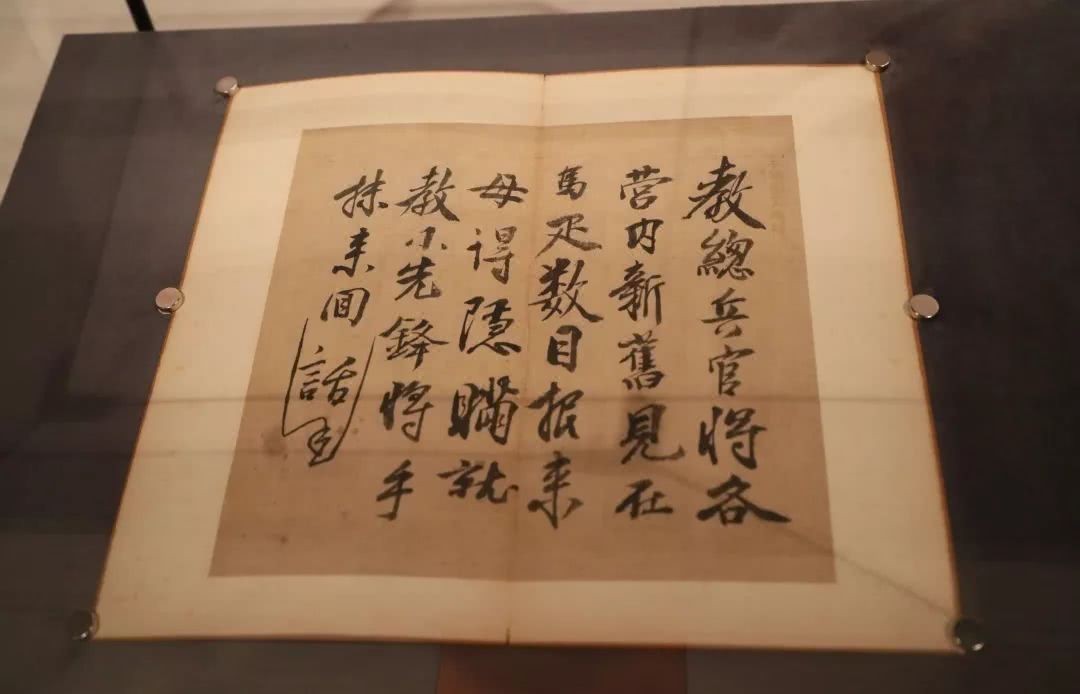 教總兵官将各
营内新舊見在
馬疋数目报来
毋得隱瞞就
教小先鋒将手
抹来回話